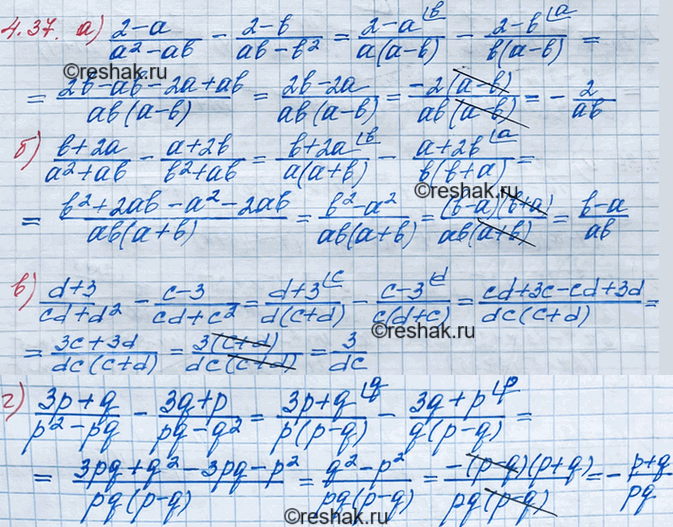 4.37. а) (2-a)/(a²-ab) - (2-b)/(ab-b²) = (2-a)⌊b/(a(a-b)) - (2-b)⌊a/(b(a-b)) =
©reshak.ru ©reshak.ru
= (2b-ab-2a+ab)/(ab(a-b)) = (2b-2a)/(ab(a-b)) = (-2(a-b))/(ab(a-b)) = - 2/(ab)
©reshak.ru
б) (b+2a)/(a²+ab) - (a+2b)/(b²+ab) = (b+2a)⌊b/(a(a+b)) - (a+2b)⌊a/(b(b+a)) =
©reshak.ru
= (b²+2ab-a²-2ab)/(ab(a+b)) = (b²-a²)/(ab(a+b)) = ((b-a)(b+a))/(ab(a+b)) = (b-a)/(ab)
в) (d+3)/(cd+d²) - (c-3)/(cd+c²) = (d+3)⌊c/(d(c+d)) - (c-3)⌊d/(c(d+c)) = (cd+3c-cd+3d)/(dc(c+d)) =
©reshak.ru
= (3c+3d)/(dc(c+d)) = (3(c+d))/(dc(c+d)) = 3/(dc)
г) (3p+q)/(p²-pq) - (3q+p)/(pq-q²) = (3p+q)⌊q/(p(p-q)) - (3q+p)⌊p/(q(p-q)) =
= (3pq+q²-3pq-p²)/(pq(p-q)) = (q²-p²)/(pq(p-q)) = (-(p-q)(p+q))/(pq(p-q)) = - (p+q)/(pq)
©reshak.ru